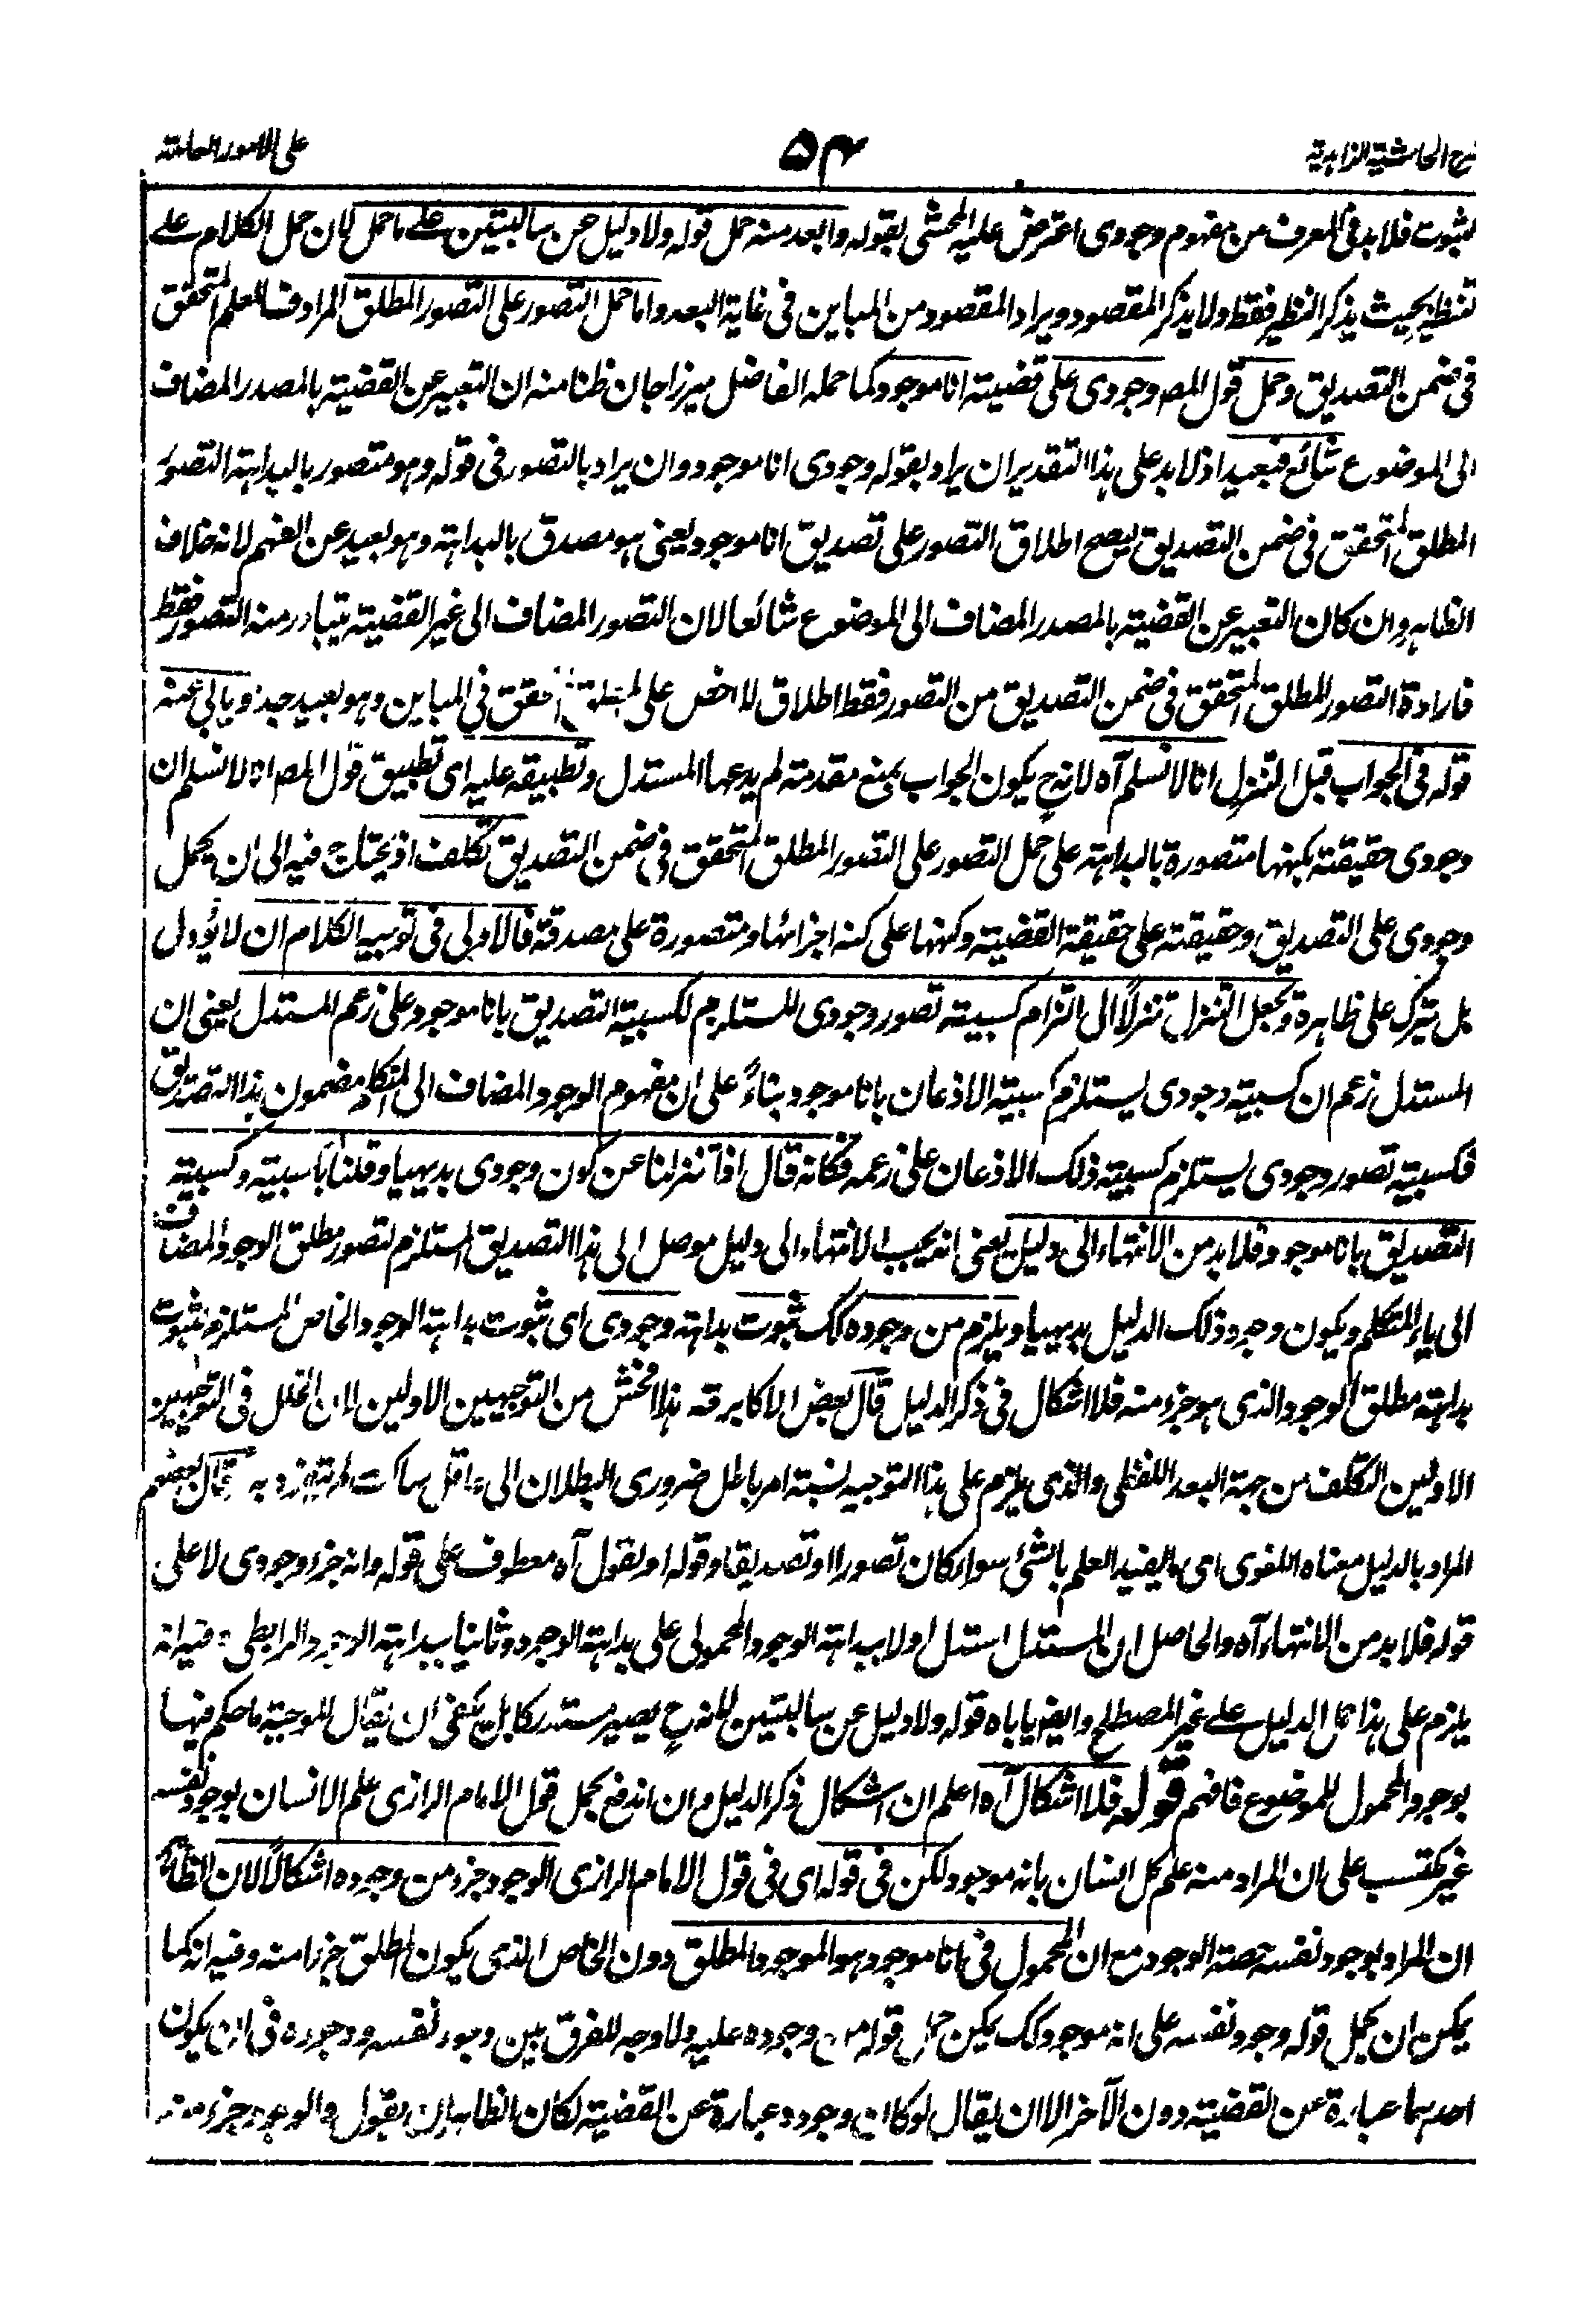 شرح الحاشية الزاهدية
٥٤
على الامور العامة
لثبوت فلا بد فى المعرف من مفهوم وجودى اعترض عليه المحشى بقوله وابعد منه حمل قوله ولا دليل عن سالبتين على ما حمل لان حمل الكلام على
تنظيره بحيث يذكر النظير فقط ولا يذكر المقصود ويراد المقصود من المباين فى غاية البعد واما حمل التصور على التصور المطلق المرادف للعلم المتحقق
فى ضمن التصديق وحمل قول المص وجودى على قضية انا موجود كما حمله الفاضل ميرزاجان ظنا منه ان التعبير عن القضية بالمصدر المضاف
الى الموضوع شائع فبعيد اذ لا بد على هذا التقدير ان يراد بقوله وجودى انا موجود وان يراد بالتصور فى قوله وهو متصور بالبداهة التصور
المطلق المتحقق فى ضمن التصديق ليصح اطلاق التصور على تصديق انا موجود يعنى هو مصدق بالبداهة وهو بعيد عن الفهم لانه خلاف
الظاهر وان كان التعبير عن القضية بالمصدر المضاف الى الموضوع شائعا لان التصور المضاف الى غير القضية يتبادر منه التصور فقط
فارادة التصور المطلق المتحقق فى ضمن التصديق من التصور فقط اطلاق لاخص على المتحقق فى المباين وهو بعيد جدا ويابى عنه
قوله فى الجواب قبل التنزل انا لا نسلم آه لانه ح يكون الجواب بمنع مقدمة لم يدعها المستدل وتطبيقه عليه اى تطبيق قول المص انا لا نسلم ان
وجودى حقيقة بكنهها متصورة بالبداهة على حمل التصور على التصور المطلق المتحقق فى ضمن التصديق تكلف اذ يحتاج فيه الى ان يحمل
وجودى على التصديق وحقيقته على حقيقة القضية وكنهها على كنه اجزائها ومتصورة على مصدقة فالاولى فى توجيه الكلام ان لا يؤول
بل يترك على ظاهره ويجعل التنزل تنزلا الى التزام كسبية تصور وجودى المستلزم لكسبية التصديق بانا موجود على زعم المستدل يعنى ان
المستدل زعم ان كسبية وجودى يستلزم كسبية الاذعان بانا موجود بناءً على ان مفهوم الوجود المضاف الى المتكلم مضمون هذا التصديق
فكسبية تصور وجودى يستلزم كسبية ذلك الاذعان على زعمه فكانه قال اذا تنزلنا عن كون وجودى بديهيا وقلنا بكسبيته وكسبية
التصديق بانا موجود فلا بد من الانتهاء الى دليل يعنى انه يجب الانتهاء الى دليل موصل الى هذا التصديق المستلزم لتصور مطلق الوجود المضاف
الى ياء المتكلم ويكون وجود ذلك الدليل بديهيا ويلزم من وجوده كك ثبوت بداهة وجودى اى ثبوت بداهة الوجود الخاص المستلزم لثبوت
بداهة مطلق الوجود الذى هو جزء منه فلا اشكال فى ذكر الدليل قال بعض الاكابر قه هذا افحش من التوجيهين الاولين لان الخلل فى التوجيهين
الاولين التكلف من جهة البعد اللفظى والذى يلزم على هذا التوجيه نسبة امر باطل ضرورى البطلان الى عاقل ساكت لم يتفوه به قال بعضهم
المراد بالدليل معناه اللغوى اى ما يفيد العلم بالشئ سواء كان تصورا او تصديقا وقوله او نقول آه معطوف على قوله وانه جزء وجودى لا على
قوله فلا بد من الانتهاء آه والحاصل ان المستدل استدل اولا ببداهة الوجود المحمولى على بداهة الوجود وثانيا ببداهة الوجود الرابطى وفيه انه
يلزم على هذا حمل الدليل على غير المصطلح وايضا ياباه قوله ولا دليل عن سالبتين لانه ح يصير مستدركا بل يكفى ان يقال الموجبة ما حكم فيها
بوجود المحمول للموضوع فافهم قوله فلا اشكال آه اعلم ان اشكال ذكر الدليل وان اندفع بحمل قول الامام الرازى علم الانسان بوجود نفسه
غير مكتسب على ان المراد منه علم كل انسان بانه موجود لكن فى قوله اى فى قول الامام الرازى الوجود جزء من وجوده اشكالا لان الظاهر
ان المراد بوجود نفسه حصة الوجود مع ان المحمول فى انا موجود هو الموجود المطلق دون الخاص الذى يكون المطلق جزءا منه وفيه انه كما
يمكن ان يحمل قوله وجود نفسه على انه موجود كك يمكن حمل قوله من وجوده عليه ولا وجه للفرق بين وجود نفسه ووجوده فى ان يكون
احدهما عبارة عن القضية دون الآخر الا ان يقال لو كان وجوده عبارة عن القضية لكان الظاهر ان يقول والوجود جزء منه